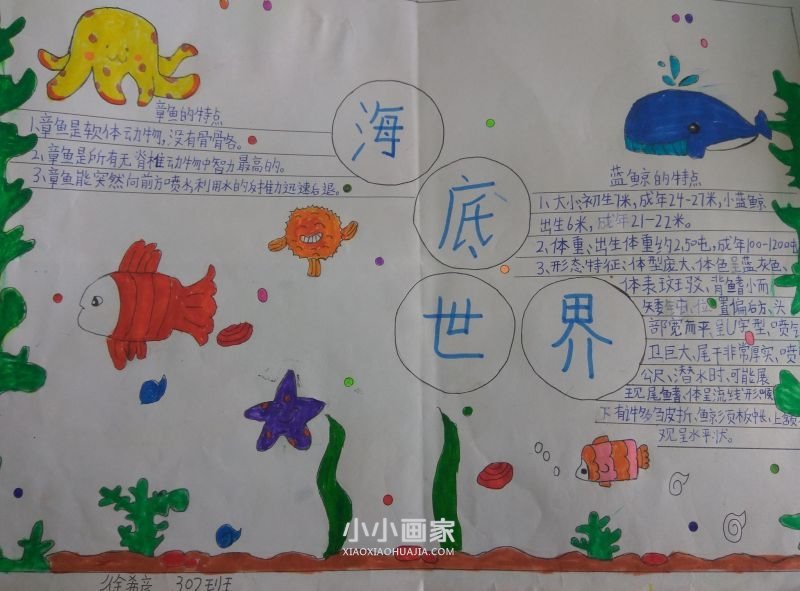 章鱼的特点
1.章鱼是软体动物,没有骨骼。
2.章鱼是所有无脊椎动物中智力最高的。
3.章鱼能突然向前方喷水利用水的反推力迅速后退。
海
底
世
界
蓝鲸的特点
1、大小初生7米,成年24-27米,小蓝鲸
出生6米,成年21-22米。
2、体重、出生体重约2.50吨,成年100-1200吨
3、形态特征:体型庞大、体色呈蓝灰色、
体表斑驳、背鳍小而
位置偏后方、头
部宽而平呈U字型,喷气
巨大,尾干非常厚实,喷
公尺、潜水时、可能展
现尾鳍、体呈流线形喉
下有许多 皮折、鲸须板 上颚
观呈水平状。
小小画家
XIAOXIAOHUAJIA.COM
徐希彦 302班